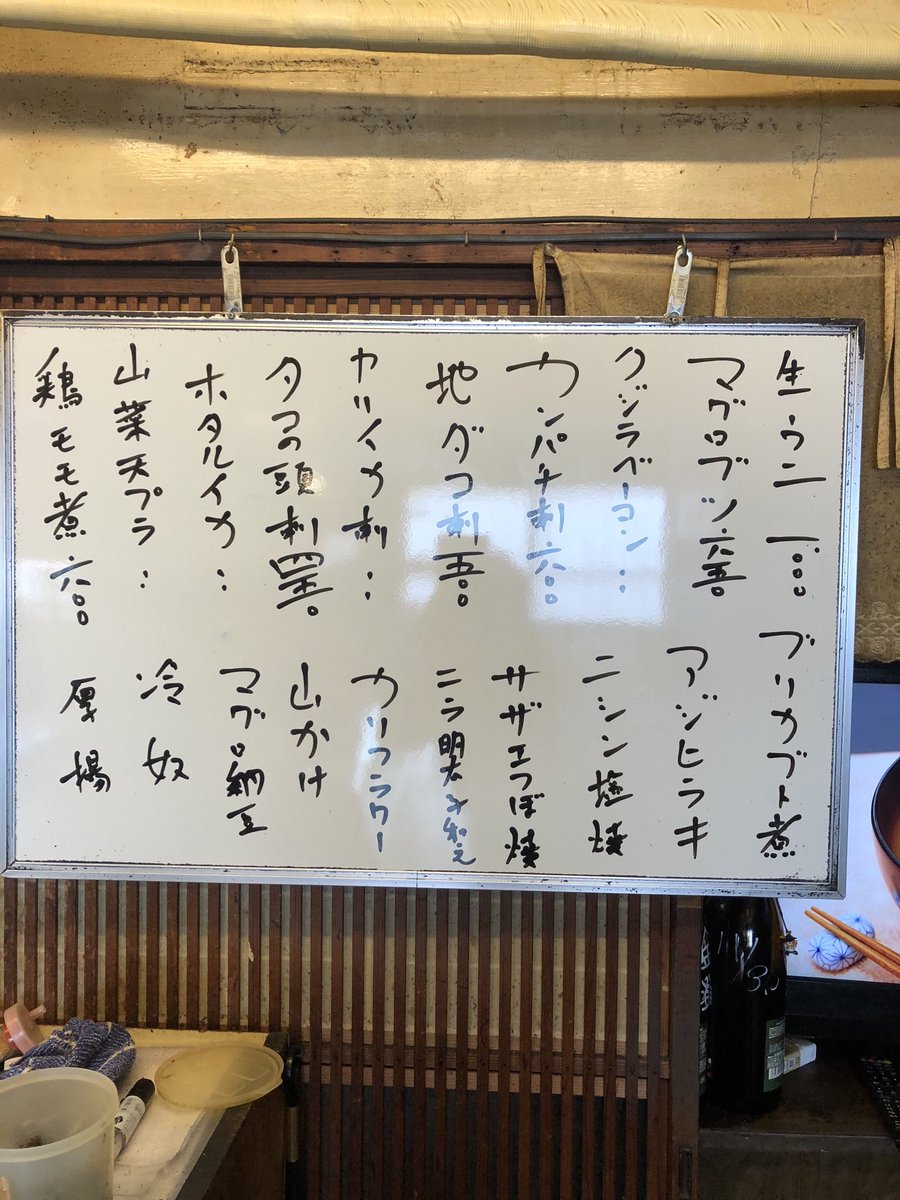 生ウニ 一、〇〇〇
マグロブツ 六五〇
クジラベーコン 〃
カンパチ刺 六〇〇
地ダコ刺 五〇〇
ヤリイカ刺 〃
タコの頭刺 四五〇
ホタルイカ 〃
山菜天プラ 〃
鶏モモ煮 六〇〇
ブリカブト煮
アジヒラキ
ニシン塩焼
サザエつぼ焼
ニラ明太子和え
カリフラワー
山かけ
マグロ納豆
冷奴
厚揚